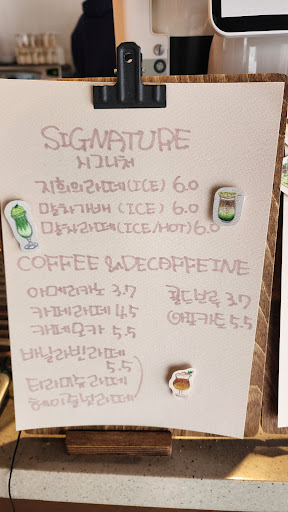 SIGNATURE
시그니처
지희의라떼(ICE) 6.0
말차가배(ICE) 6.0
말차라떼(ICE/HOT) 6.0
COFFEE &DECAFFEINE
아메리카노 3.7
콜드브루 3.7
카페라떼 4.5
아포카토 5.5
카페모카 5.5
바닐라빈라떼
5.5
티라미눗라떼
헤이즐넛라떼